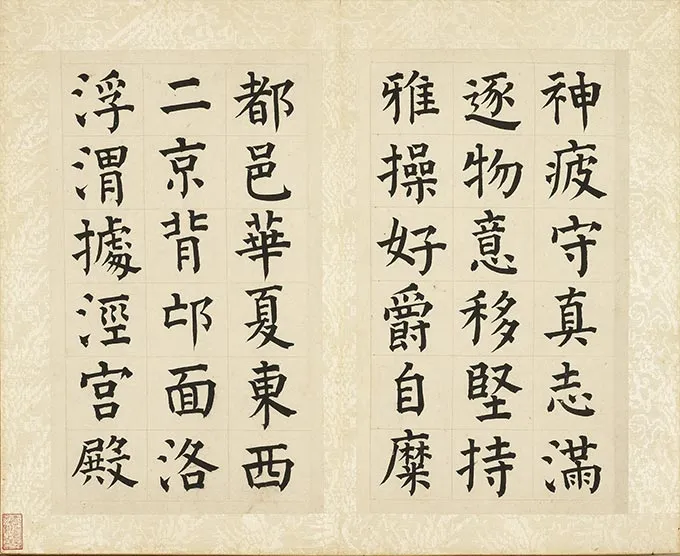 神疲守真志滿
逐物意移堅持
雅操好爵自糜
都邑華夏東西
二京背邙面洛
浮渭據涇宮殿